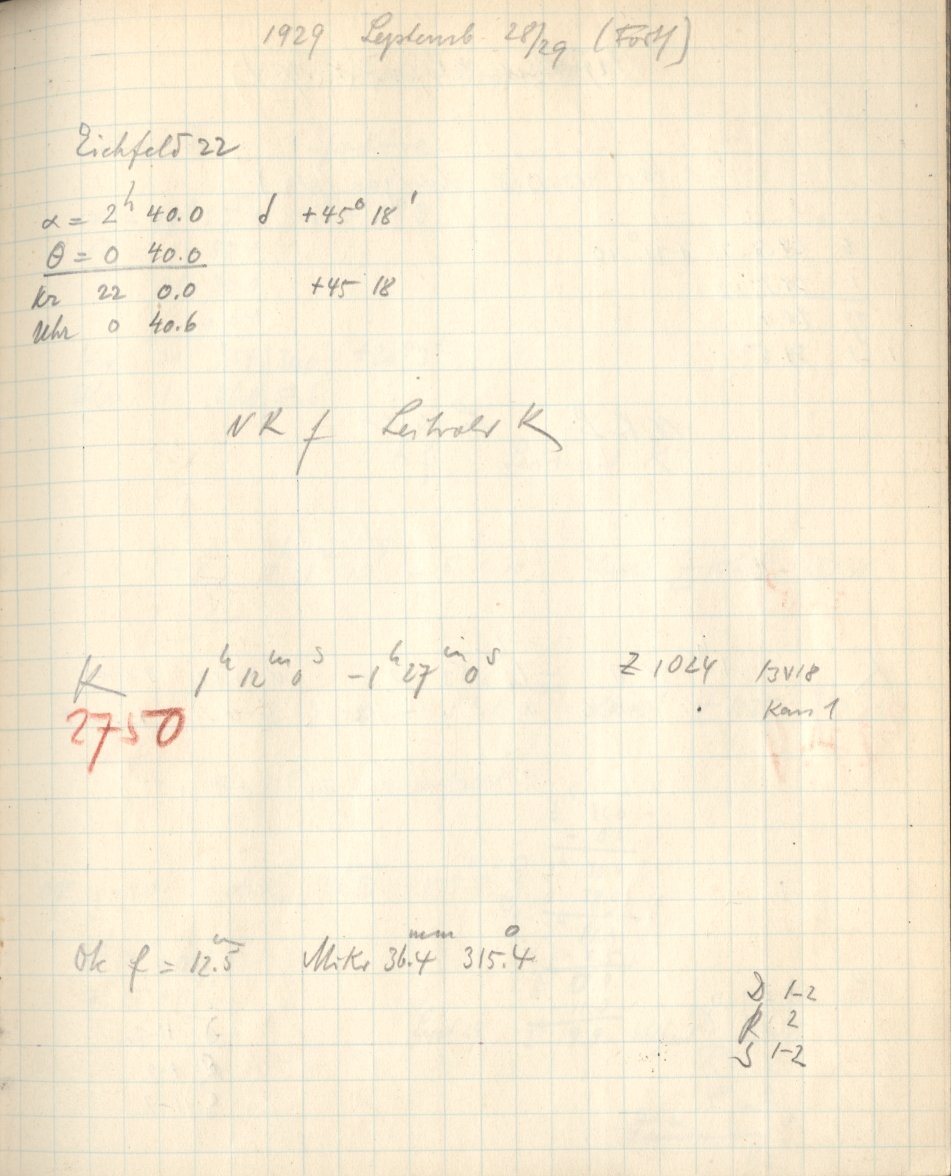 1929 Septemb 28/29 (Forts)
Eichfeld 22
α = 2h 40.0 δ +45° 18'
θ = 0 40.0
Kr 22 0.0 +45 18
Uhr 0 40.6
NR f K
K 1h 12m 0s - 1h 27m 0s Z 1024
2750 Kass 1
Ok f = 12.5 Mikr 36.4mm 315.4°
D 1-2
R 2
S 1-2